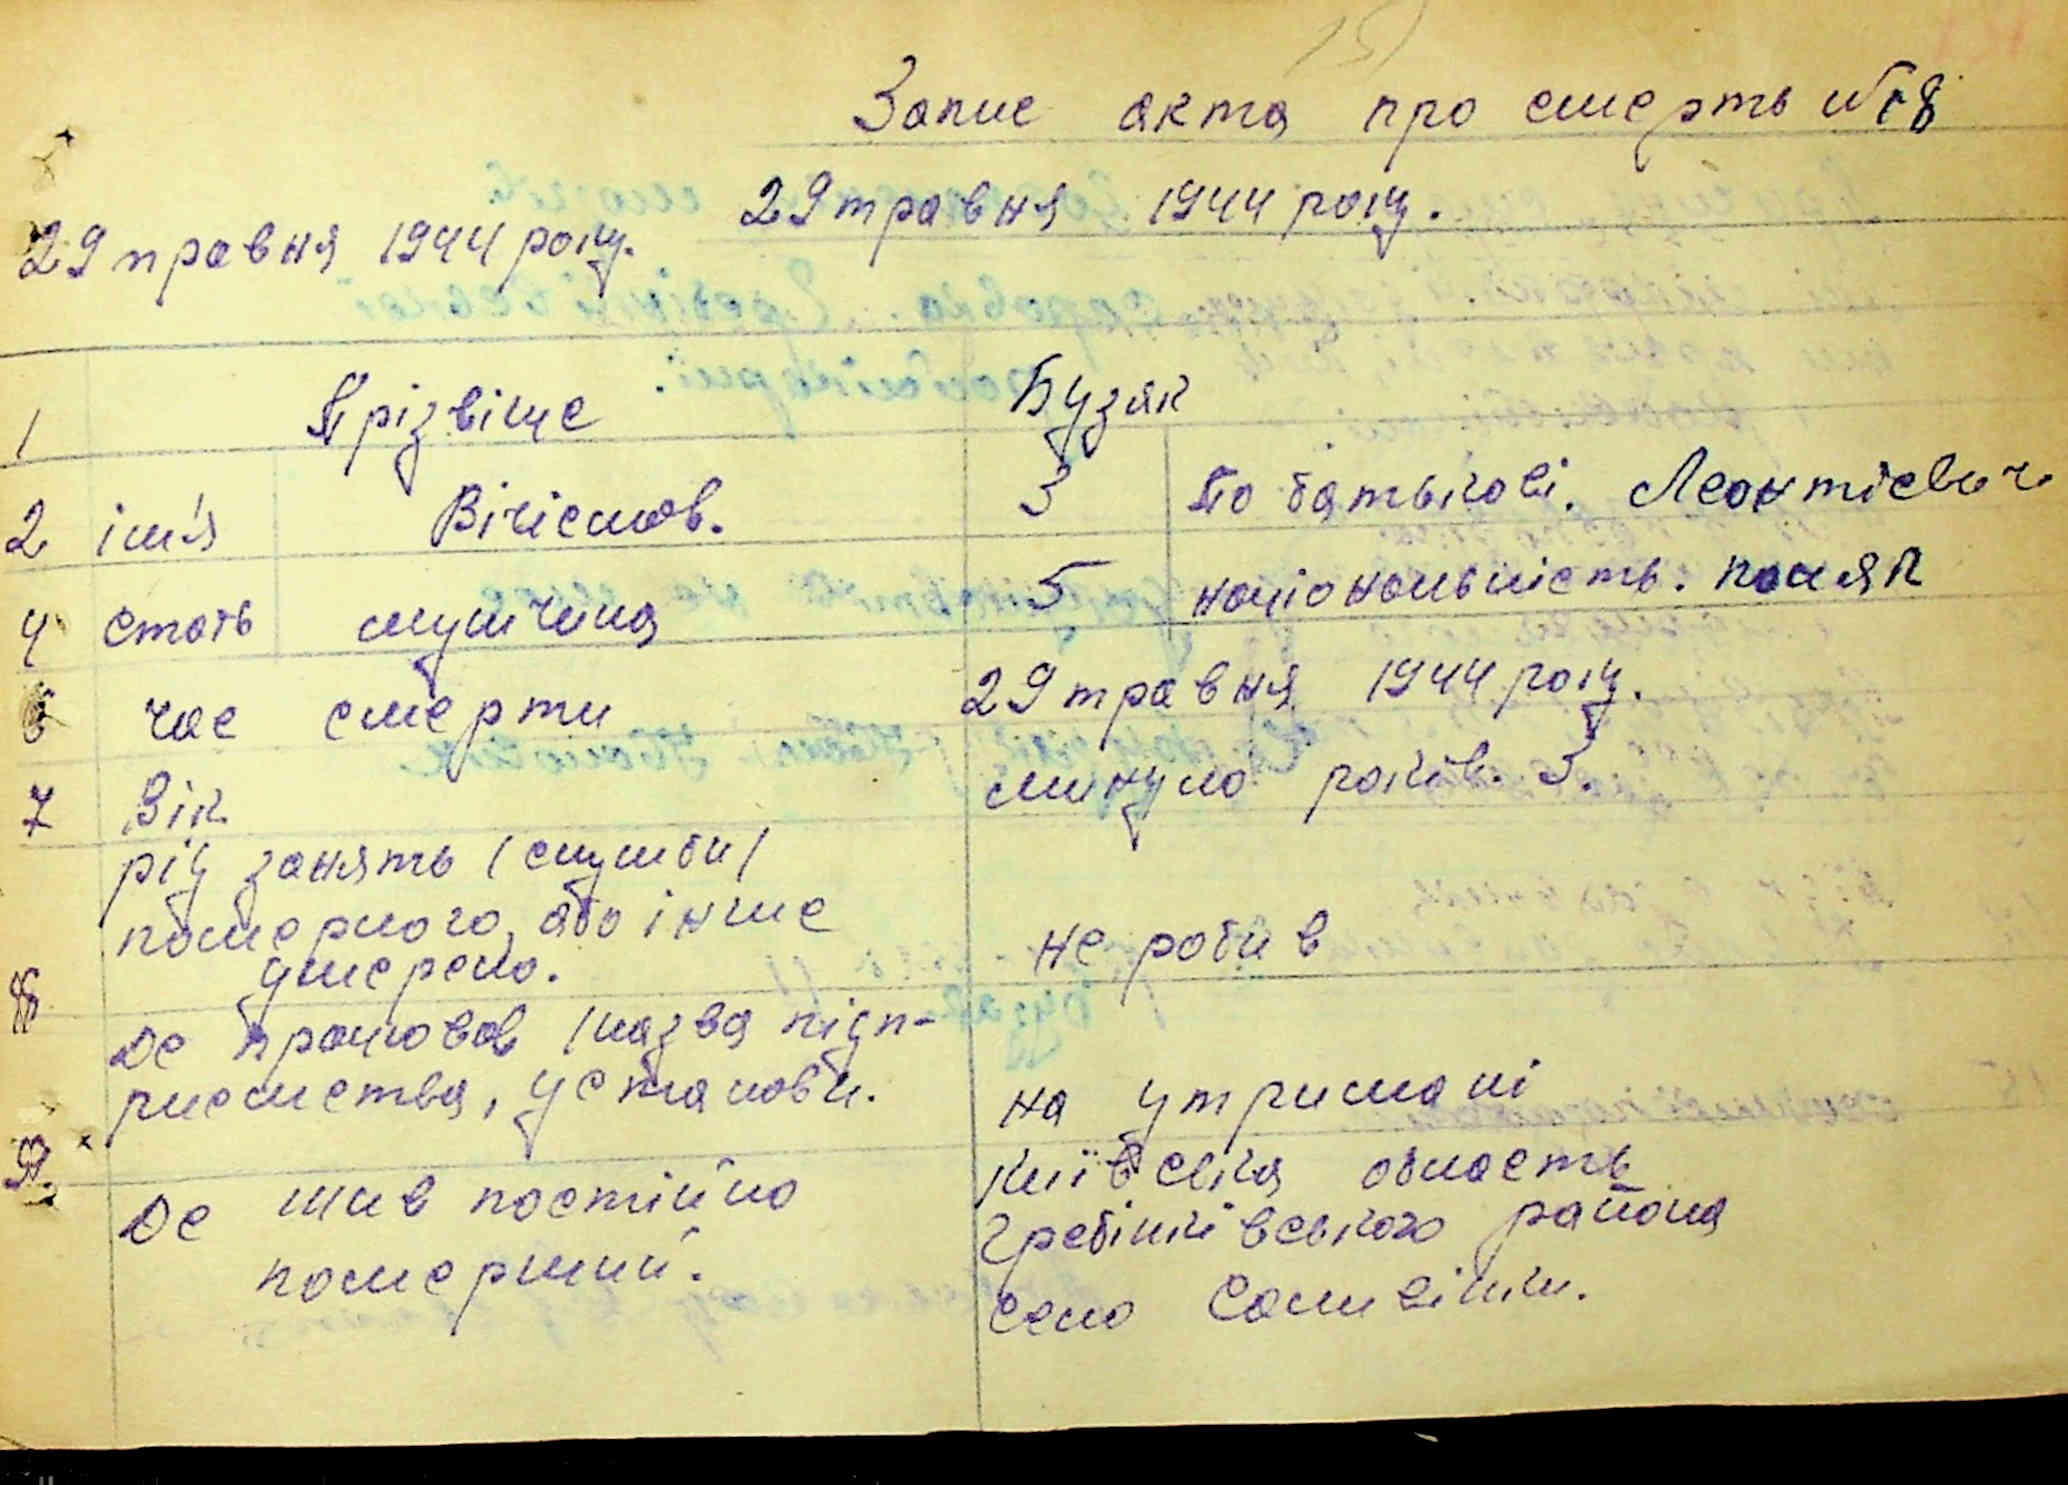 Запис акта про смерть №18
29 травня 1944 року.
29 травня 1944 року.
1 Прізвіще Бузяк
2 ім'я Вічіслав. 3 По батькові. Леонтієвич
4 стать мущчина 5 національність. поляк
6 час смерти 29 травня 1944 року.
7 Вік. минуло років. 3.
рід занять (служби)
померлого, або інше
джерело.
не робив
8
де працював (назва підп-
риємства, установи.
на утримані
9.
де жив постійно
померший.
Київська область
Гребінківського района
село Саливінки.